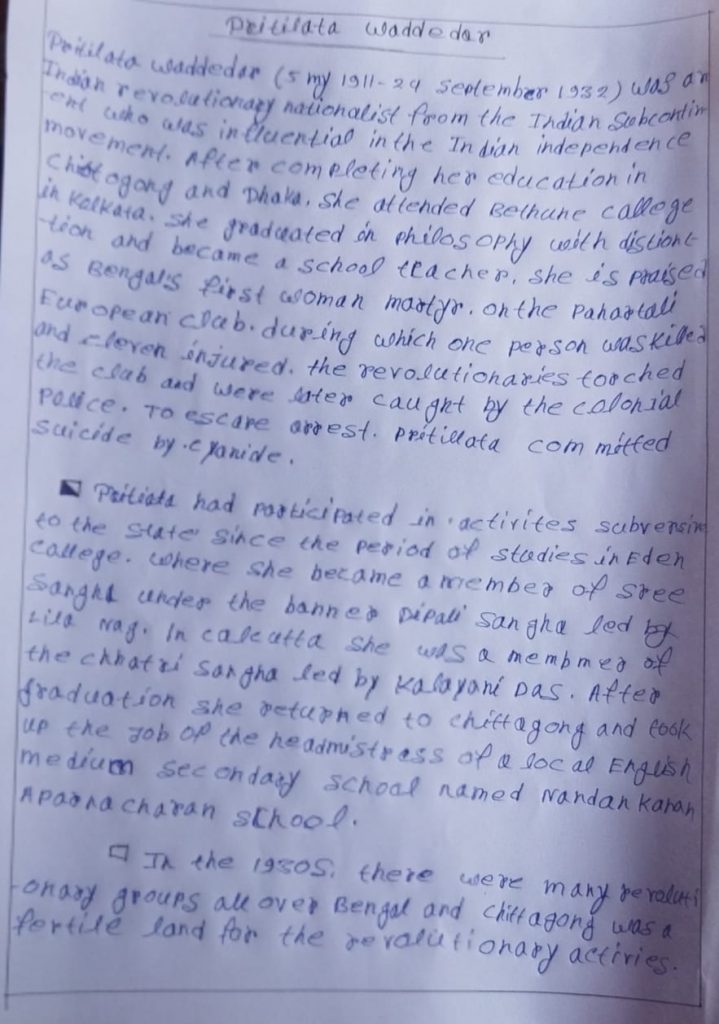 Pritilata Waddedar
Pritilata Waddedar (5 my 1911-24 September 1932) was an
Indian revolutionary nationalist from the Indian Subcontin
-ent who was influential in the Indian independence
movement. After completing her education in
Chittogong and Dhaka. She attended Bethune callege
in Kolkata. She graduated in philosophy with distiont-
-tion and became a school teacher. She is praised
as Bengal's first woman martyr. on the Pahartali
European club. during which one person was killed
and eleven injured. the revolutionaries torched
the club and were later caught by the colonial
police. To escape arrest. Pritillata com mitted
suicide by cyanide.
Pritilata had participated in activites subversive
to the state since the period of studies in Eden
callege. where she became a member of sree
Sangha under the banner Dipali sangha led by
Lila Nag. In calcutta she was a membmer of
the chhatri sangha led by Kalayani Das. After
graduation she returned to chittagong and took
up the job of the headmistrass of a local English
medium secondary school named Nandan Karan
Aparna charan school.
In the 1930s. there were many revoluti
-onary groups all over Bengal and chittagong was a
fertile land for the revolutionary activries.